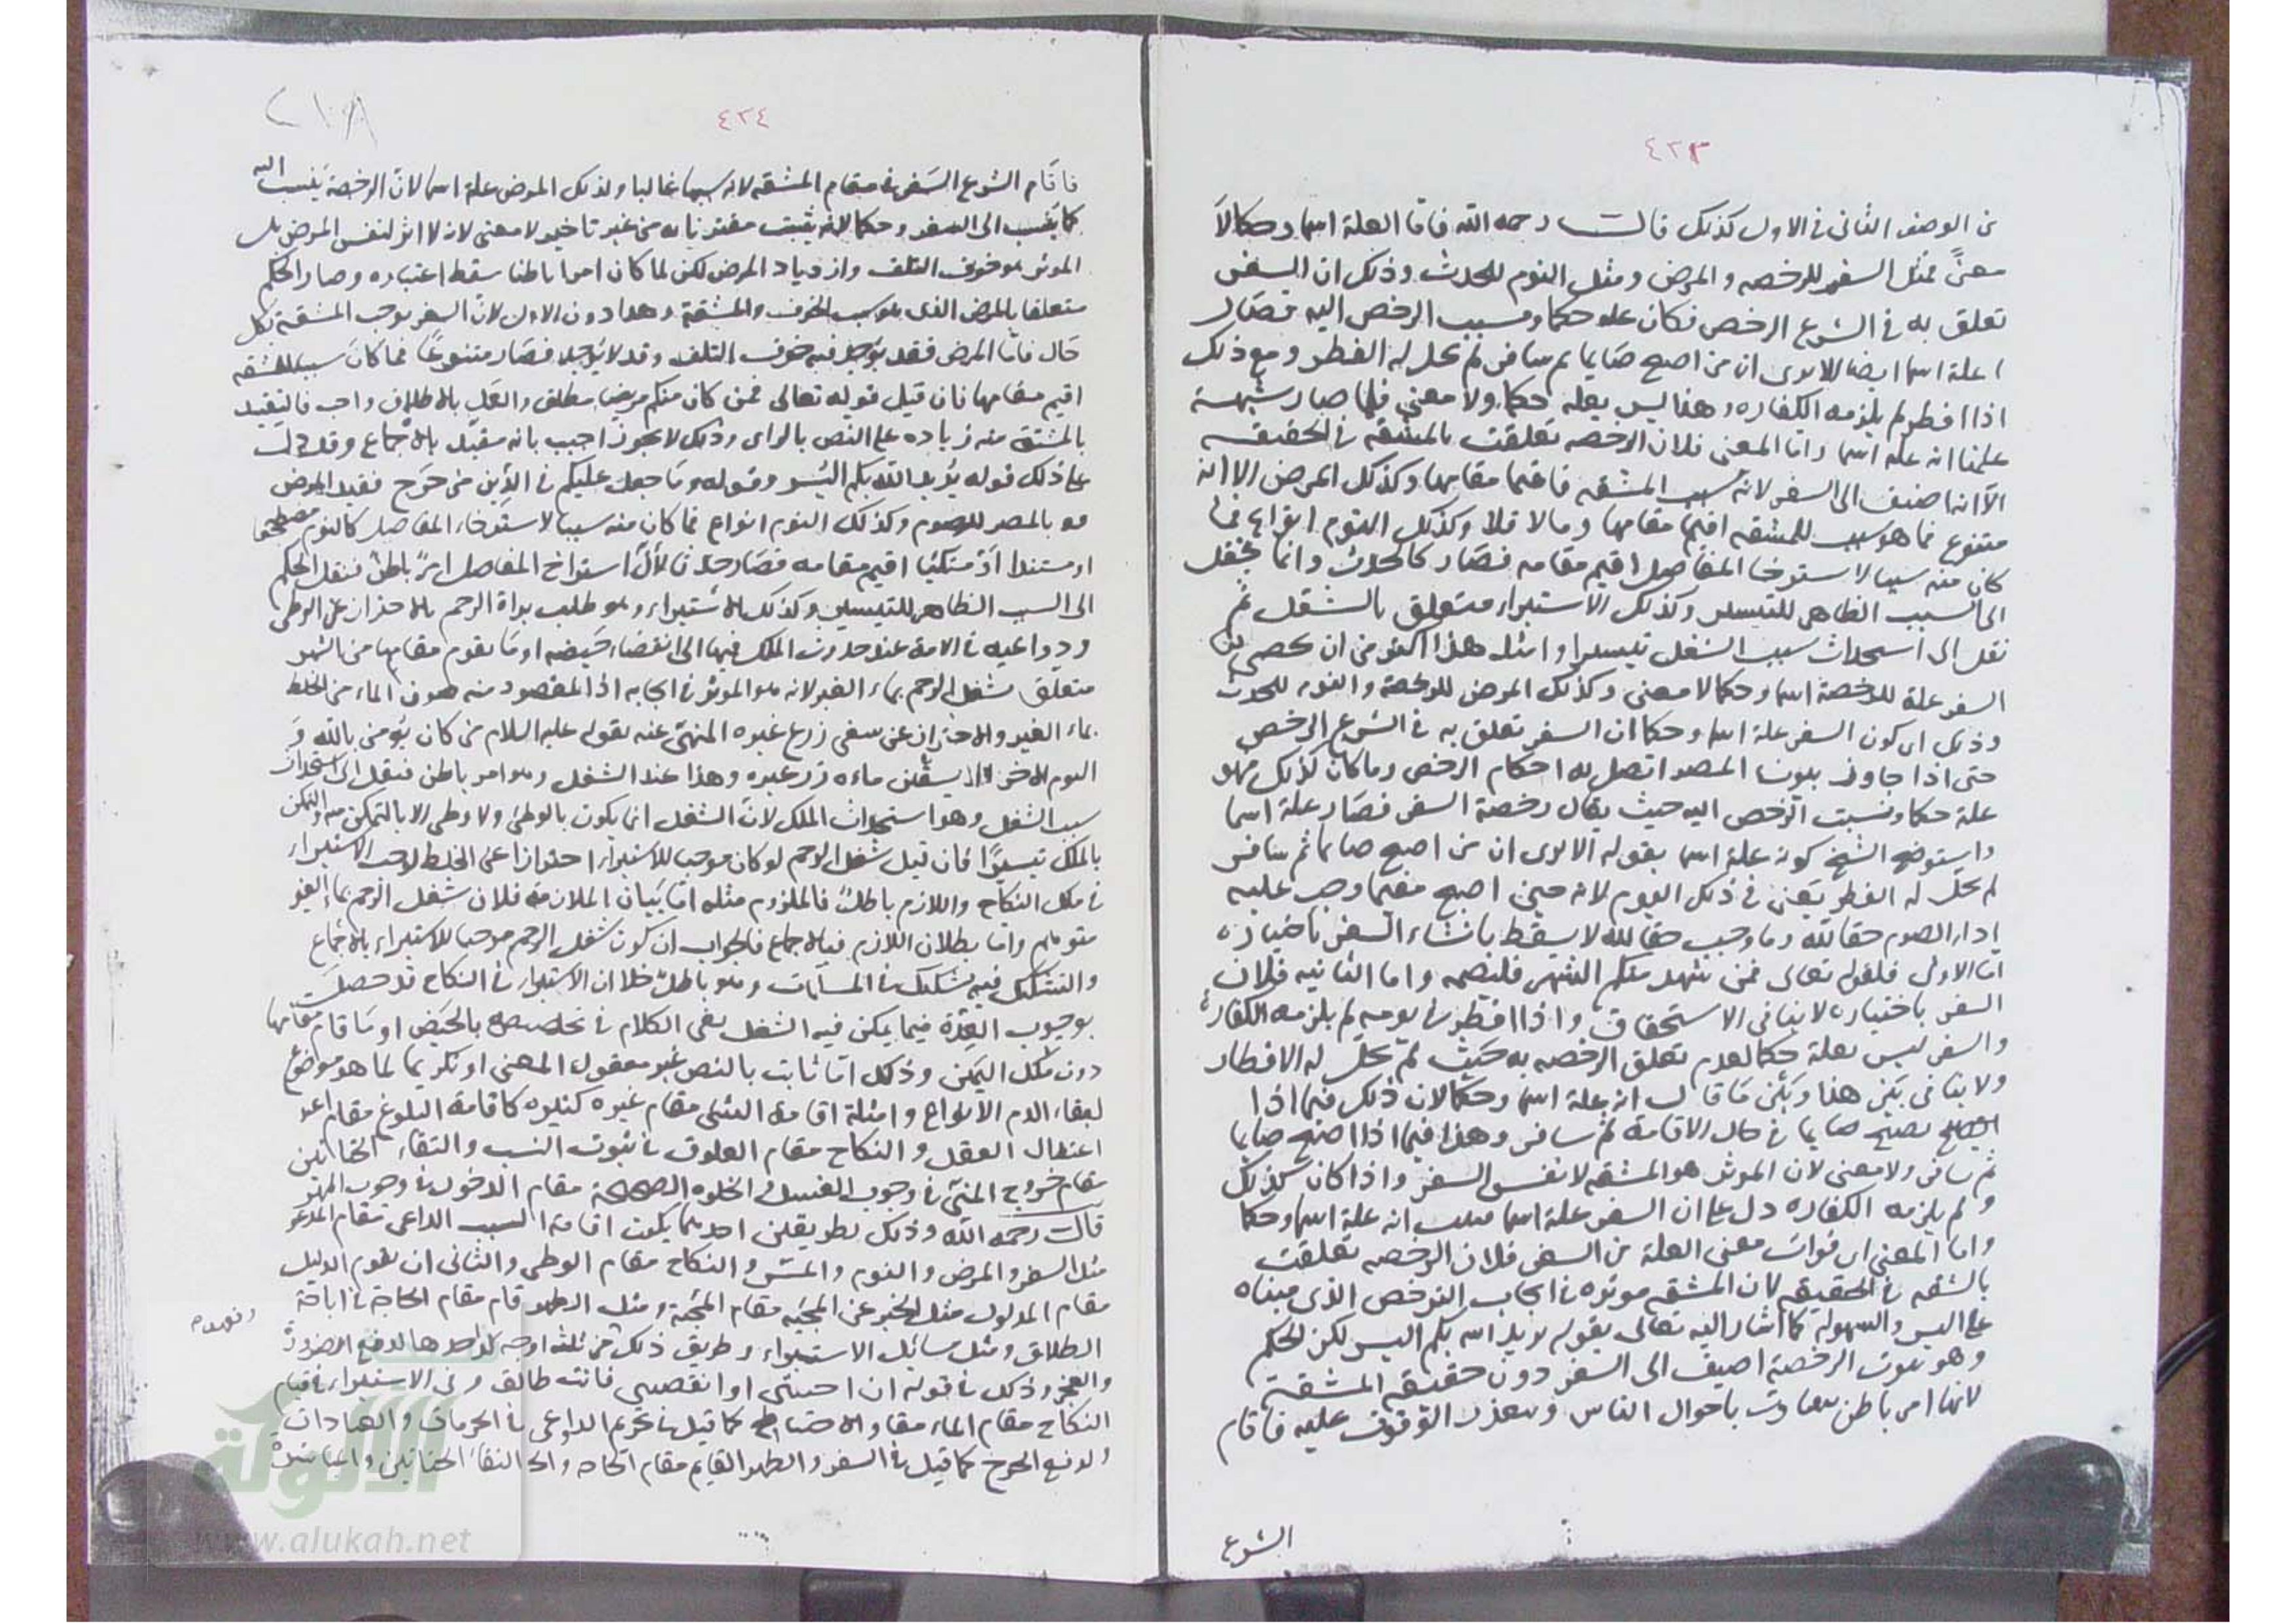 ٤٢٣
من الوصف الثاني في الاول كذلك قالـــت رحمه الله فاما العلة اسما وحكما لا
معنًى فمثل السفر للرخصه والمرض ومثل النوم للحدث وذلك ان السفر
تعلق به في الشرع الرخص فكان عله حكما ونسبت الرخص اليه فصار
علة اسما ايضا الا يرى ان من اصبح صايما ثم سافر لم يحل له الفطر ومع ذلك
اذا افطر لم يلزمه الكفاره وهذا ليس بعله حكما ولا معنى فلما صار شبهة
علمنا انه علة اسما واما المعنى فلان الرخصه تعلقت بالمشقه في الحقيقه
الا انه اضيف الى السفر لانه سبب المشقه فاقيم مقامها وكذلك المرض الا انه
متنوع فما هو سبب للمشقه اقيم مقامها وما لا فلا وكذلك النوم انواع فما
كان منه سببا لاسترخا المفاصل اقيم مقامه فصار كالحدث وانما ينقل
الى السبب الظاهر للتيسير وكذلك الاستبراء متعلق بالشغل ثم
نقل الى استحداث سبب الشغل تيسيرا وامثله هذا اكثر من ان يحصى
السفر علة للرخصة اسما وحكما لا معنى وكذلك المرض للرخصة والنوم للحدث
وذلك اى كون السفر علة اسما وحكما ان السفر تعلق به في الشرع الرخص
حتى اذا جاوز بيوت المصر اتصل به احكام الرخص وما كان كذلك فهو
علة حكما ونسبت الرخص اليه حيث يقال رخصة السفر فصار علة اسما
واستوضح الشيخ كونه علة اسما بقوله الا يرى ان من اصبح صايما ثم سافر
لم يحل له الفطر يعنى في ذلك اليوم لانه حين اصبح مقيما وجب عليه
اداء الصوم حقا لله وما وجب حقا لله لا يسقط بانشاء السفر باختياره
اما الاولى فلقوله تعالى فمن شهد منكم الشهر فليصمه واما الثانيه فلان
السفر باختياره لا ينافى الاستحقاق واذا افطر في يومه لم يلزمه الكفارة
والسفر ليس بعلة حكما لعدم تعلق الرخصه به حيث لم يحل له الافطار
ولا ينافى بين هذا وبين ما قال انه علة اسما وحكما لان ذلك فيما اذا
يصبح صايما في حال الاقامة ثم سافر وهذا فيما اذا اصبح صايما
ثم سافر ولا معنى لان الموثر هو المشقه لا نفس السفر واذا كان كذلك
ولم يلزمه الكفاره دل على ان السفر علة اسما انه علة اسما وحكما
واما المعنى اى فوات معنى العلة من السفر فلان الرخصه تعلقت
بالمشقه في الحقيقه لان المشقه موثره في ايجاب الترخص الذى مبناه
على اليسر والسهولة كما اشار اليه تعالى بقوله يريد الله بكم اليسر لكن الحكم
وهو ثبوت الرخصة اضيف الى السفر دون حقيقه المشقة
لانها امر باطن يتفاوت باحوال الناس ويتعذر الوقوف عليه فاقام
الشرع
٤٢٤
٢١٨
فاقام الشرع السفر في مقام المشقه لانه سببها غالبا وكذلك المرض علة اسما لان الرخصة ينسب اليه
كما ينسب الى السفر وحكما لانه يثبت مقترنا به من غير تاخير لا معنى لانه لا اثر لنفس المرض بل
الموثر هو خوف التلف وازدياد المرض لكن لما كان امرا باطنا سقط اعتباره وصار الحكم
متعلقا بالمرض الذى هو سبب الخوف والمشقة وهذا دون الاول لان السفر يوجب المشقة بكل
حال فاما المرض فقد يوجد فيه خوف التلف وقد لا يوجد فصار متنوعا فما كان سببا للمشقه
اقيم مقامها فان قيل قوله تعالى فمن كان منكم مريضا مطلق والعمل بالاطلاق واجب فالتقييد
بالمشقة منه زياده على النص بالراى وذلك لا يجوز اجيب بانه مقيد بالاجماع وقد دل
على ذلك قوله يريد الله بكم اليسر وقوله وما جعل عليكم في الدين من حرج فقيد المرض
هو بالمضر للصوم وكذلك النوم انواع فما كان منه سببا لاسترخاء المفاصل كالنوم مضطجعا
او مستندا او متكئا اقيم مقامه فصار حدثا لان استراخ المفاصل امر باطن فنقل الحكم
الى السبب الظاهر للتيسير وكذلك الاستبراء وهو طلب براة الرحم بالاحتراز عن الوطى
ودواعيه في الامة عند حدوث الملك فيها الى انقضاء حيضه او ما يقوم مقامها من الشهر
متعلق بشغل الرحم بماء الغير لانه هو الموثر في ايجابه اذ المقصود منه صون الماء من الخلط
بماء الغير والاحتراز عن سقى زرع غيره المنهى عنه بقوله عليه السلام من كان يؤمن بالله و
اليوم الاخر فلا يسقين ماءه زرع غيره وهذا عند الشغل وهو امر باطن فنقل الى استحداث
سبب الشغل وهو استحداث الملك لان الشغل انما يكون بالوطى ولا وطى الا بالتمكن منه والتمكن
بالملك تيسيرا فان قيل شغل الرحم لو كان موجبا للاستبراء احترازا عن الخلط لوجب الاستبراء
في ملك النكاح واللازم باطل فالملزوم مثله اما بيان الملازمة فلان شغل الرحم بماء الغير
متوهم واما بطلان اللازم فبالاجماع فالجواب ان كون شغل الرحم موجبا للاستبراء بالاجماع
والتشكيك فيه تشكيك في المسلمات وهو باطل خلا ان الاستبراء في النكاح قد حصلت
بوجوب العدة فيما يمكن فيه الشغل بقى الكلام في تخصيصه بالحيض او ما قام مقامها
دون ملك اليمين وذلك اما ثابت بالنص غير معقول المعنى او تكريما لما هو موضوع
لبقاء الادم الانواع وامثلة اقامة الشى مقام غيره كثيره كاقامة البلوغ مقام
اعتدال العقل والنكاح مقام العلوق في ثبوت النسب والتقاء الختانين
مقام خروج المنى في وجوب الغسل والخلوه الصحيحة مقام الدخول في وجوب المهر
قالت رحمه الله وذلك بطريقين احدهما يكون اقامة السبب الداعى مقام المدعو
مثل السفر والمرض والنوم والمس والنكاح مقام الوطى والثانى ان يقوم الدليل
مقام المدلول مثل الخبر عن المحبه مقام المحبة ومثل الطهر قام مقام الحاجة في اباحة
الطلاق ومثل مسائل الاستبراء وطريق ذلك من ثلثه اوجه احدها لدفع الضرورة
والعجز وذلك في قوله ان احببتنى او ابغضتنى فانت طالق وفى الاستبراء في قيام
النكاح مقام الماء مقام والاحتياط كما قيل في تحريم الداوعى في الحرمات والعبادات
ولدفع الحرج كما قيل في السفر والطهر القايم مقام الحاجه والتقاء الختانين والمباشرة
الألوكة
www.alukah.net